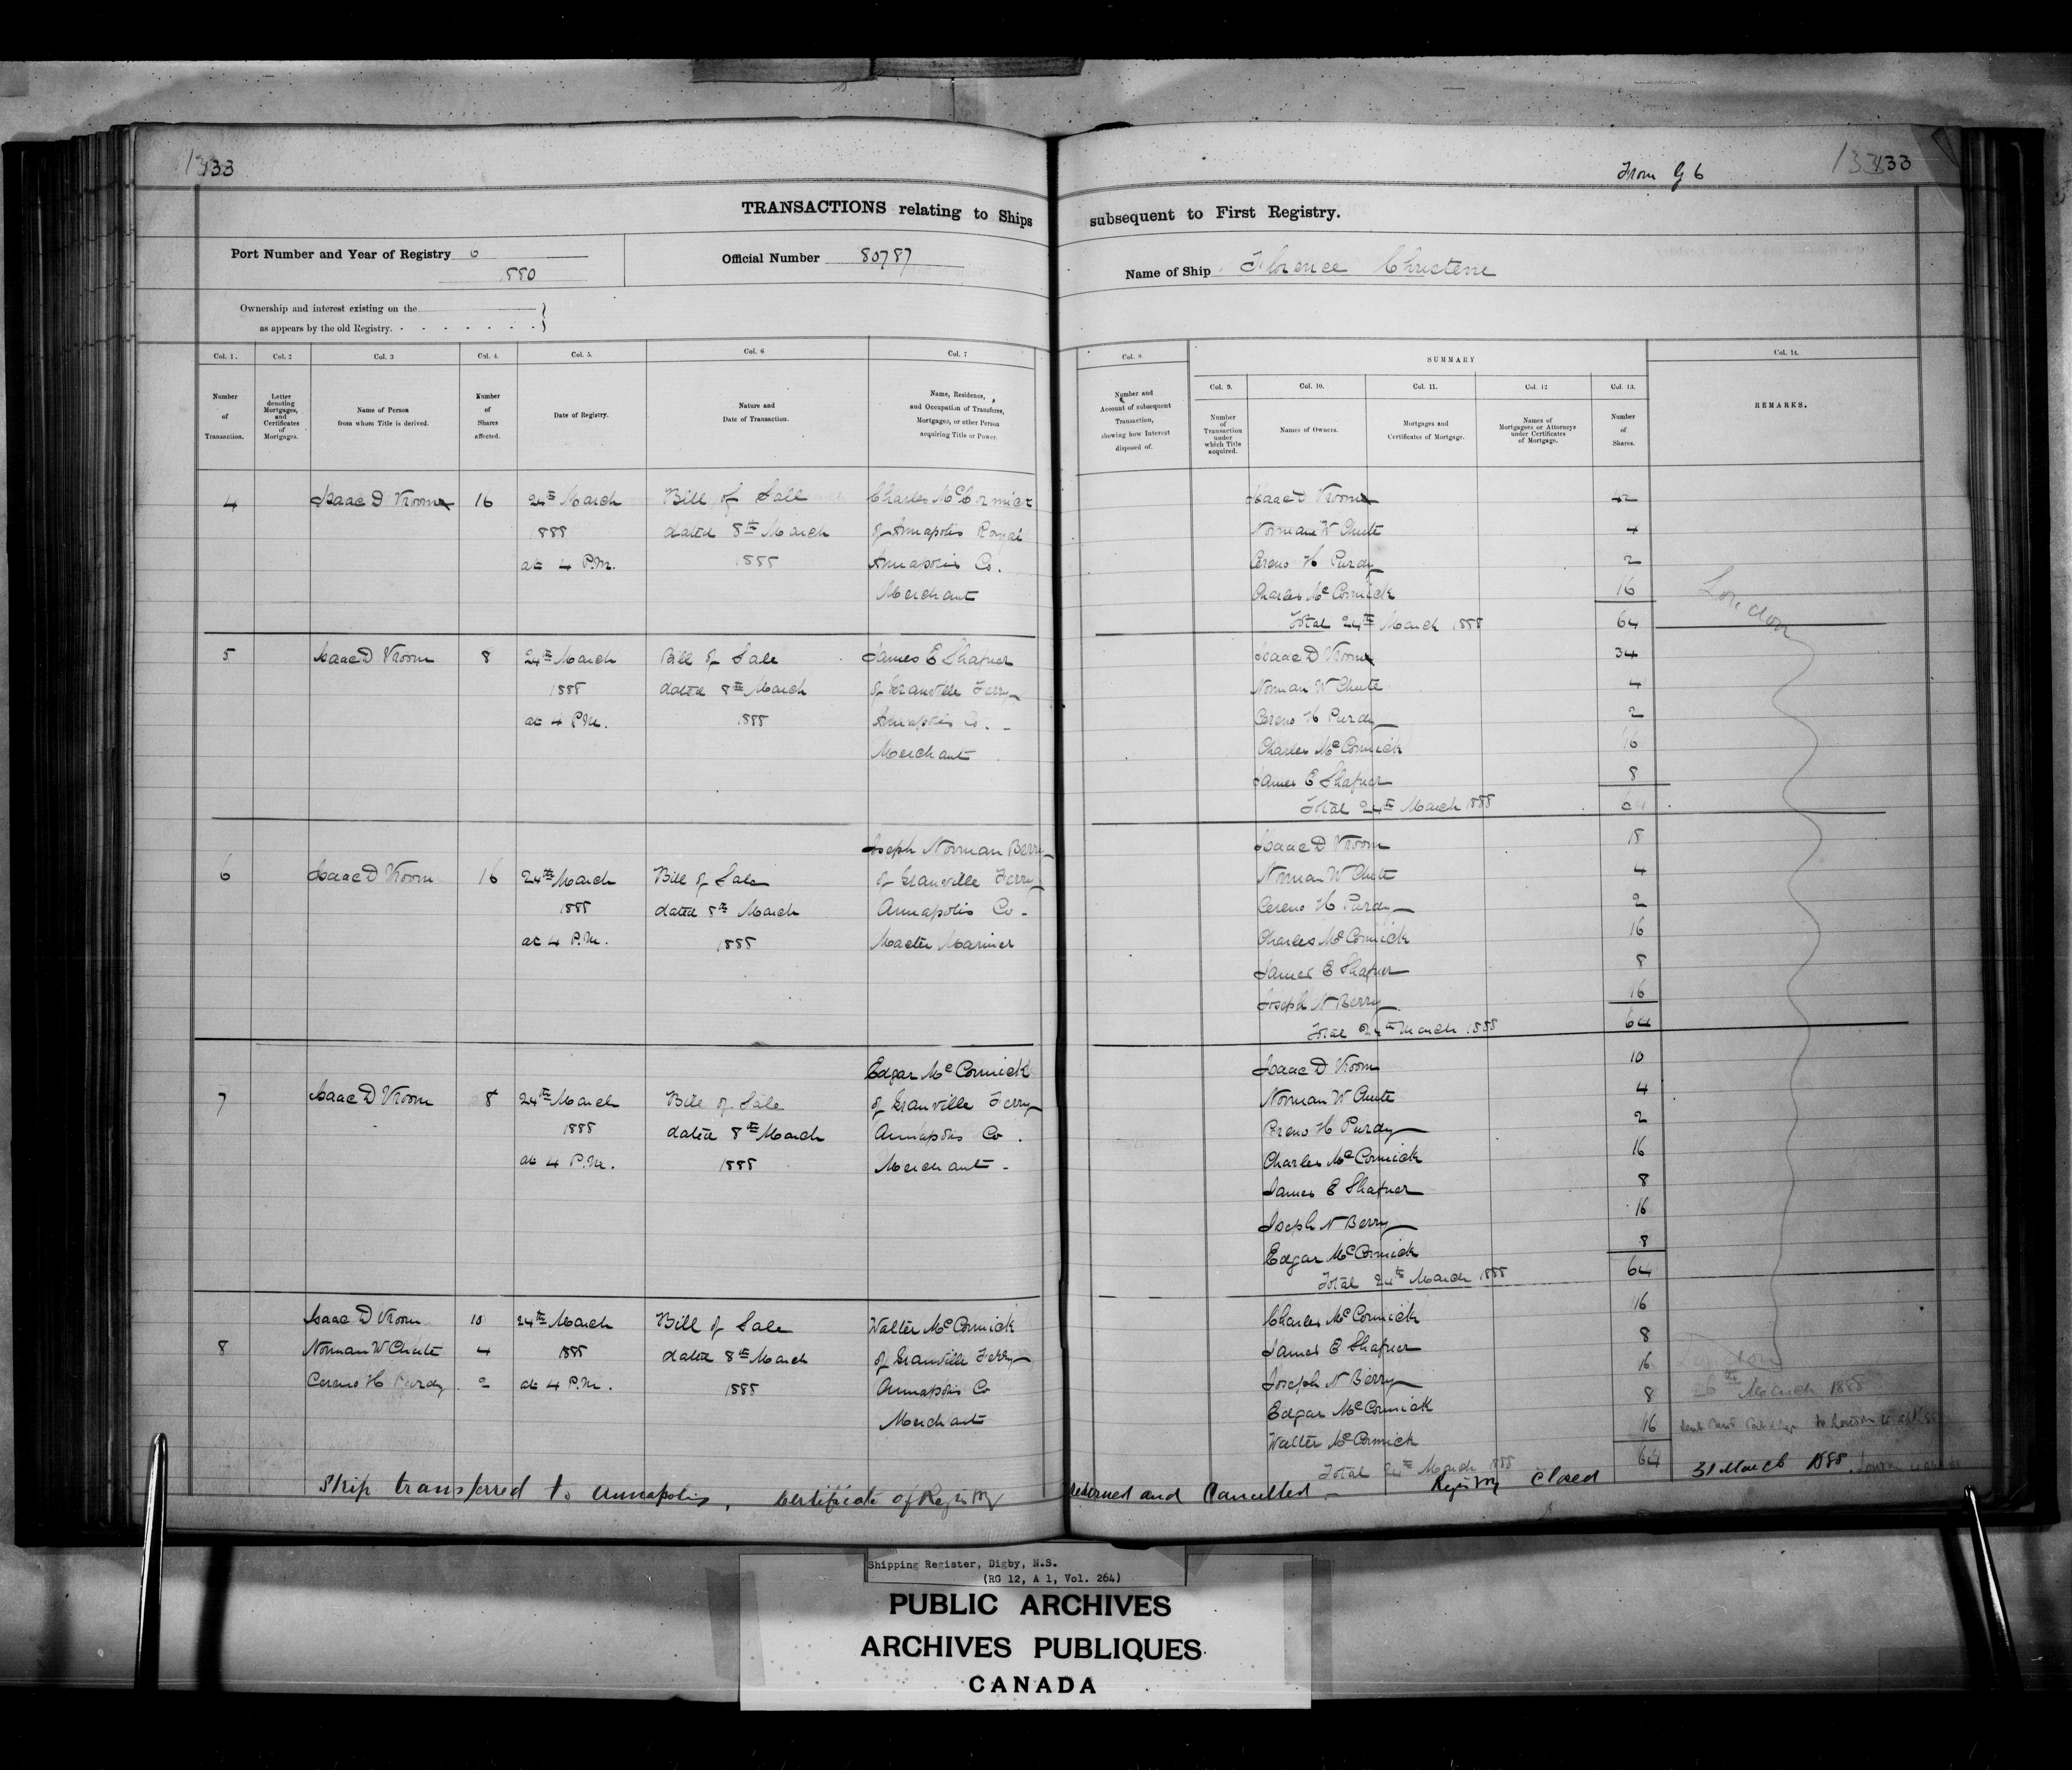 133
133
From G 6
TRANSACTIONS relating to Ships subsequent to First Registry.
Port Number and Year of Registry 6
1880
Official Number 80787
Name of Ship Florence Christene
Ownership and interest existing on the
as appears by the old Registry.
Col. 1. Col. 2 Col. 3 Col. 4. Col. 5. Col. 6 Col. 7
Number of Transaction.
Letter denoting Mortgages, and Certificates of Mortgages.
Name of Person from whom Title is derived.
Number of Shares affected.
Date of Registry.
Nature and Date of Transaction.
Name, Residence, and Occupation of Transferee, Mortgagee, or other Person acquiring Title or Power.
4 Isaac D Vroom 16 24th March Bill of Sale Charles McCormick
1888 dated 8th March of Annapolis Royal
at 4 P.M. 1888 Annapolis Co.
Merchant
5 Isaac D Vroom 8 24th March Bill of Sale James E Shafner
1888 dated 8th March of Granville Ferry
at 4 P.M. 1888 Annapolis Co.
Merchant
Joseph Norman Berry
6 Isaac D Vroom 16 24th March Bill of Sale of Granville Ferry
1888 dated 8th March Annapolis Co.
at 4 P.M. 1888 Master Mariner
Edgar McCormick
7 Isaac D Vroom 8 24th March Bill of Sale of Granville Ferry
1888 dated 8th March Annapolis Co.
at 4 P.M. 1888 Merchant
Isaac D Vroom 10 24th March Bill of Sale Walter McCormick
8 Norman W Chute 4 1888 dated 8th March of Granville Ferry
Cereno H Purdy 2 at 4 P.M. 1888 Annapolis Co
Merchant
Col. 8. SUMMARY Col. 14.
Col. 9. Col. 10. Col. 11. Col. 12 Col. 13.
Number and Account of subsequent Transaction, showing how Interest disposed of.
Number of Transaction under which Title acquired.
Names of Owners.
Mortgages and Certificates of Mortgage.
Names of Mortgagees or Attorneys under Certificates of Mortgage.
Number of Shares.
REMARKS.
Isaac D Vroom 42
Norman W Chute 4
Cereno H Purdy 2
Charles McCormick 16
Total 24th March 1888 64
London
Isaac D Vroom 34
Norman W Chute 4
Cereno H Purdy 2
Charles McCormick 16
James E Shafner 8
Total 24th March 1888 64
Isaac D Vroom 18
Norman W Chute 4
Cereno H Purdy 2
Charles McCormick 16
James E Shafner 8
Joseph N Berry 16
Total 24th March 1888 64
Isaac D Vroom 10
Norman W Chute 4
Cereno H Purdy 2
Charles McCormick 16
James E Shafner 8
Joseph N Berry 16
Edgar McCormick 8
Total 24th March 1888 64
Charles McCormick 16
James E Shafner 8
Joseph N Berry 16 London
Edgar McCormick 8 26th March 1888
Walter McCormick 16
Total 24th March 1888 64
Ship transferred to Annapolis, Certificate of Registry returned and Cancelled - Registry Closed 31 March 1888.
Shipping Register, Digby, N.S.
(RG 12, A 1, Vol. 264)
PUBLIC ARCHIVES
ARCHIVES PUBLIQUES
CANADA